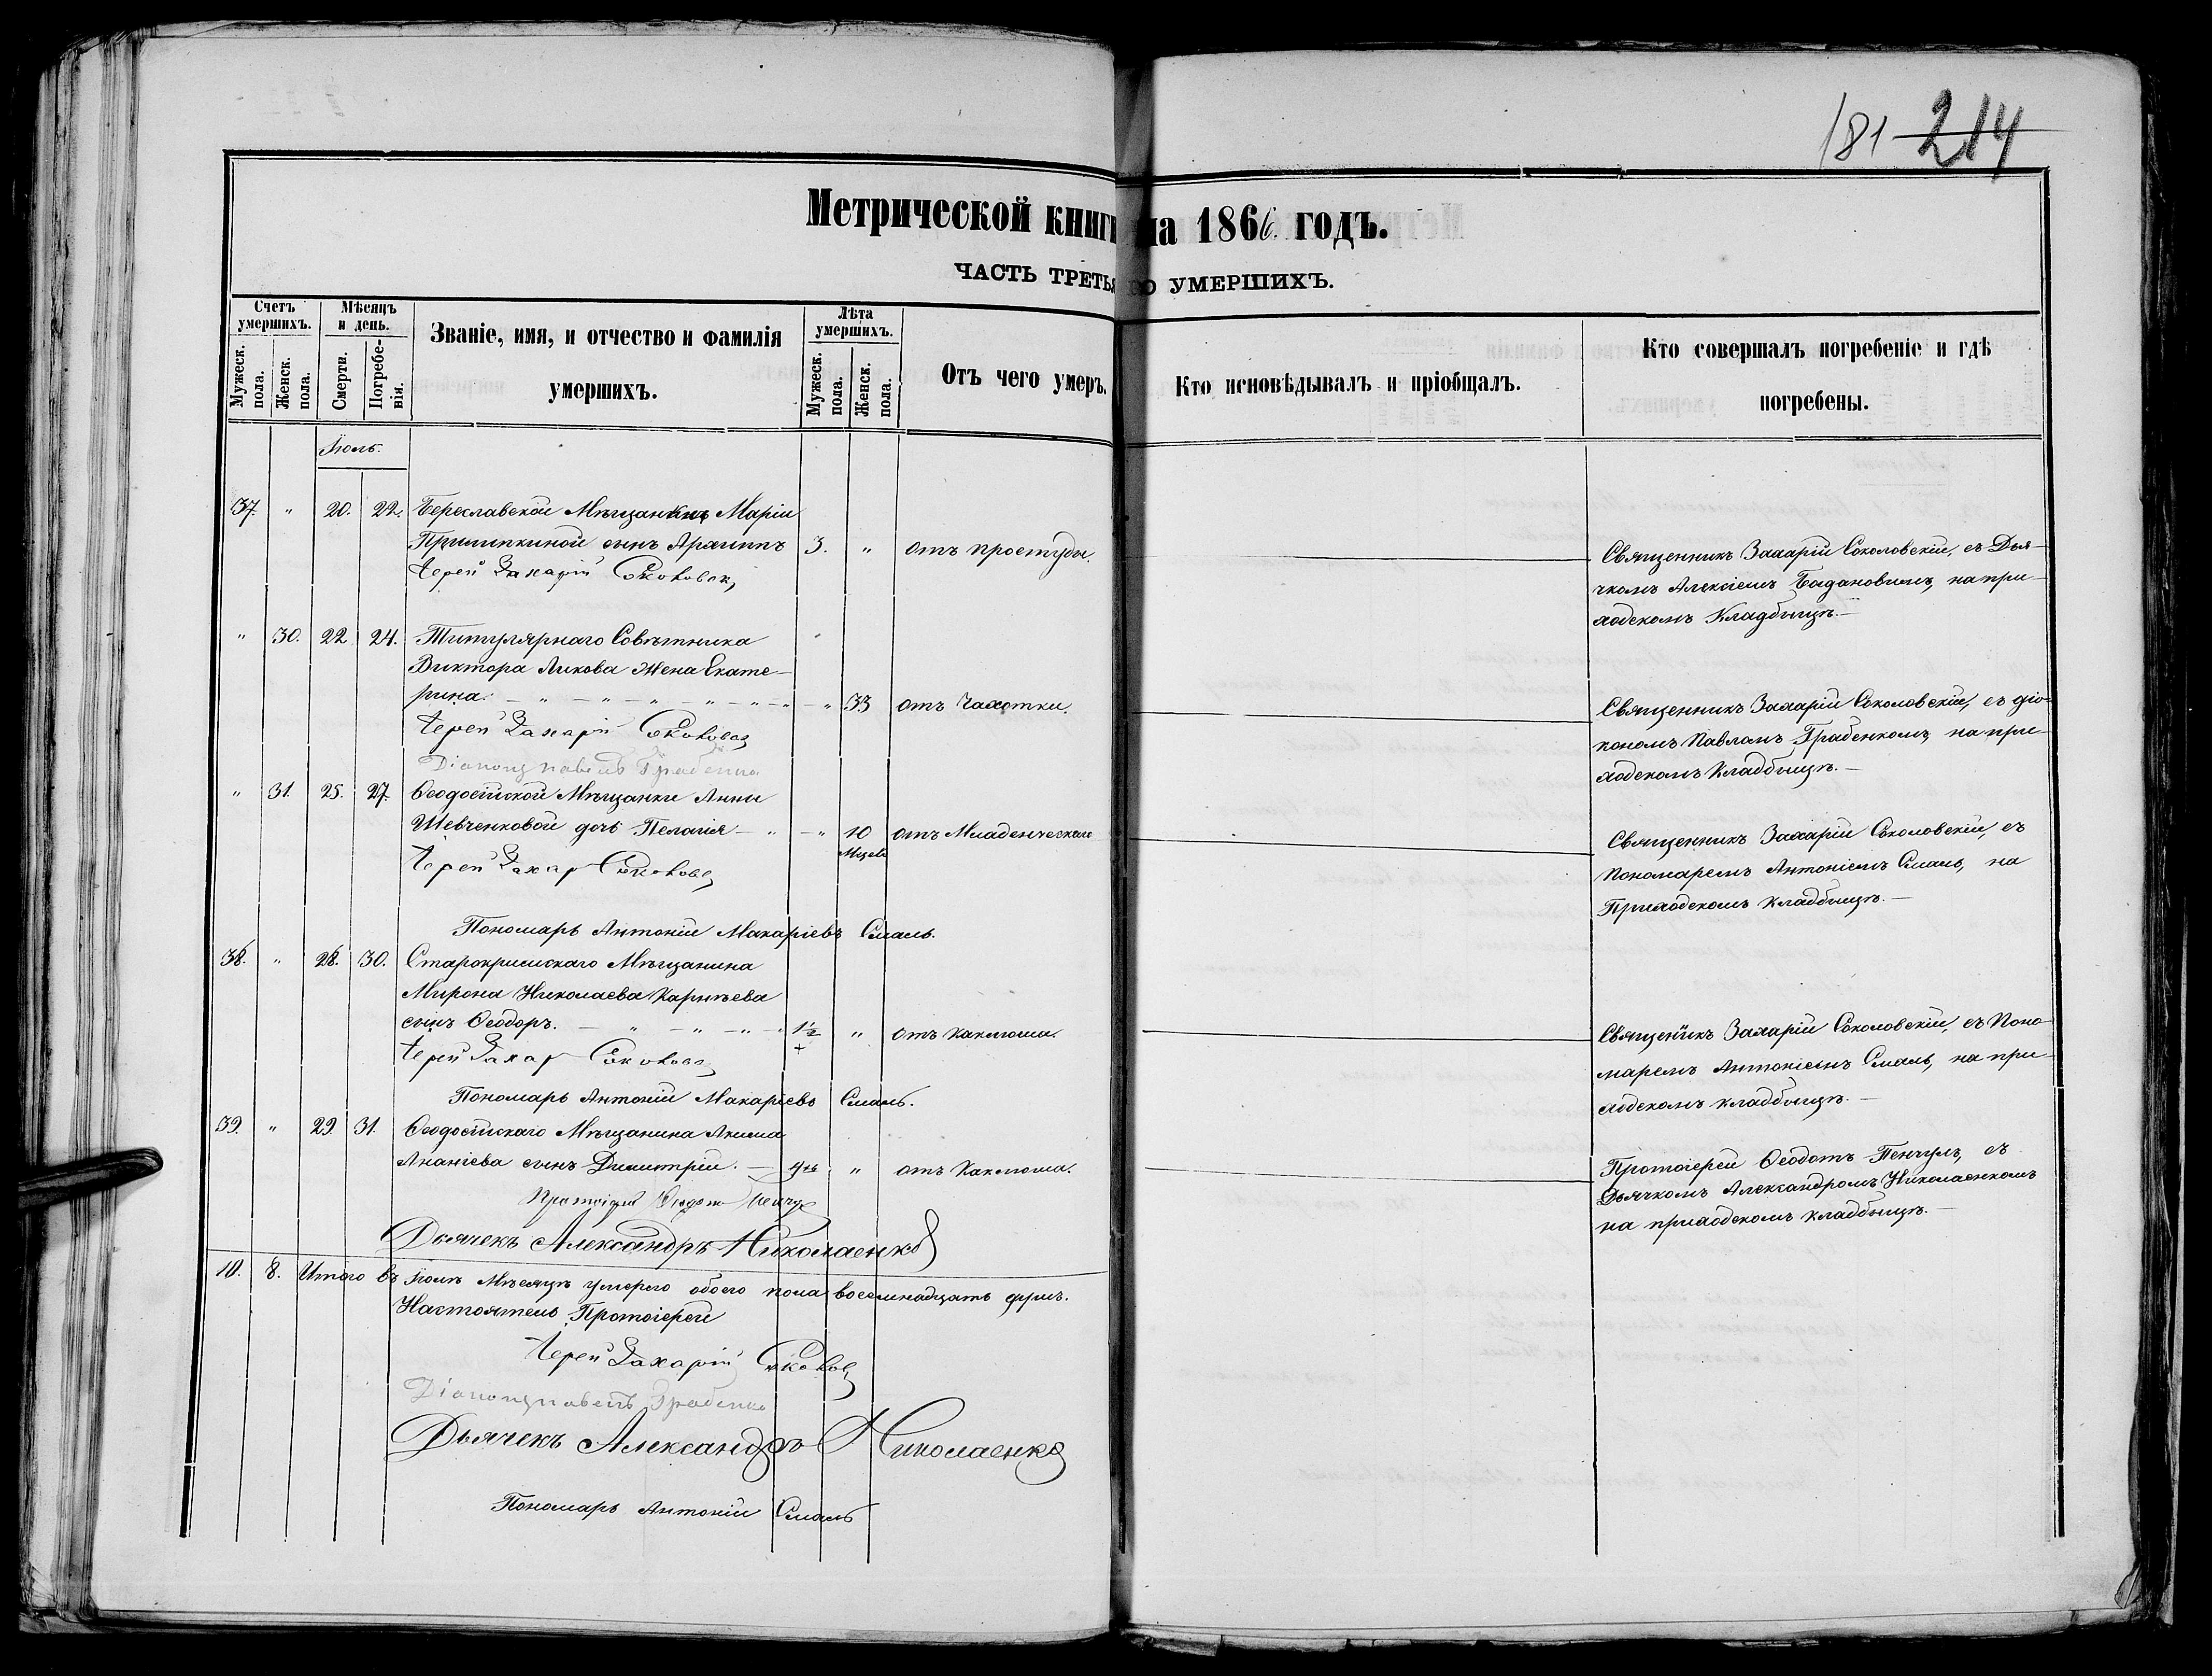 181 214
Метрической книги на 1866. годъ.
ЧАСТЬ ТРЕТЬЯ О УМЕРШИХЪ.
Счетъ умершихъ.
Мужеск. пола.
Женск. пола.
Мѣсяцъ и день.
Смерти.
Погребенія.
Званіе, имя, и отчество и фамилія
умершихъ.
Лѣта умершихъ.
Мужеск. пола.
Женск. пола.
Отъ чего умеръ.
Кто исповѣдывалъ и пріобщалъ.
Кто совершалъ погребеніе и гдѣ
погребены.
Іюль.
37. " 20. 22. Береславской Мѣщанки Маріи
сынъ Архиппъ 3. " отъ простуды.
Іерей Захарій Соколовск
Священникъ Захарій Соколовскій, съ Дья-
чкомъ Алексіемъ на при-
ходскомъ Кладбищѣ.—
" 30. 22 24. Титулярнаго Совѣтника
Виктора Ликова жена Екате-
рина. — " — " — " — " — " 33 отъ Чахотки.
Іерей Захарій Соколовс
Діаконъ Павелъ Грабенко
Священникъ Захарій Соколовскій, съ діа-
кономъ Павломъ Грабенкомъ, на при-
ходскомъ Кладбищѣ.—
" 31. 25. 27. Ѳеодосійской Мѣщанки Анны
Шевченковой дочь Пелагія — " — " 10 отъ Младенческаго
Мцевъ
Іерей Захар Соколовс
Священникъ Захарій Соколовскій, съ
Пономаремъ Антоніемъ Смаль, на
Приходскомъ Кладбищѣ.—
Пономарь Антоній Макаріевъ Смаль.
38. " 28. 30. Старокрымскаго Мѣщанина
Мирона Николаева Карнѣева
сынъ Ѳеодоръ. — " — " — " — " 1½ " отъ Каклюша.
Іерей Захар Соколовс
Священникъ Захарій Соколовскій, съ Поно-
маремъ Антоніемъ Смаль, на при-
ходскомъ кладбищѣ.—
Пономарь Антоній Макаріевъ Смаль.
39. " 29. 31. Ѳеодосійскаго Мѣщанина Акима
Ананіева сынъ Димитрій. — " отъ Каклюша.
Протоіерей Ѳеодотъ Пенчул
Протоіерей Ѳеодотъ Пенчулъ, съ
Дьячкомъ Александромъ Николаенкомъ
на приходскомъ кладбищѣ.—
Дьячекъ Александръ Николаенко
10. 8. Итого въ Іюлѣ Мѣсяцѣ умерло обоего пола восемнадцать душъ.
Настоятель Протоіерей
Іерей Захарій Соколовс
Діаконъ Павелъ Грабенко
Дьячекъ Александръ Николаенко
Пономарь Антоній Смаль